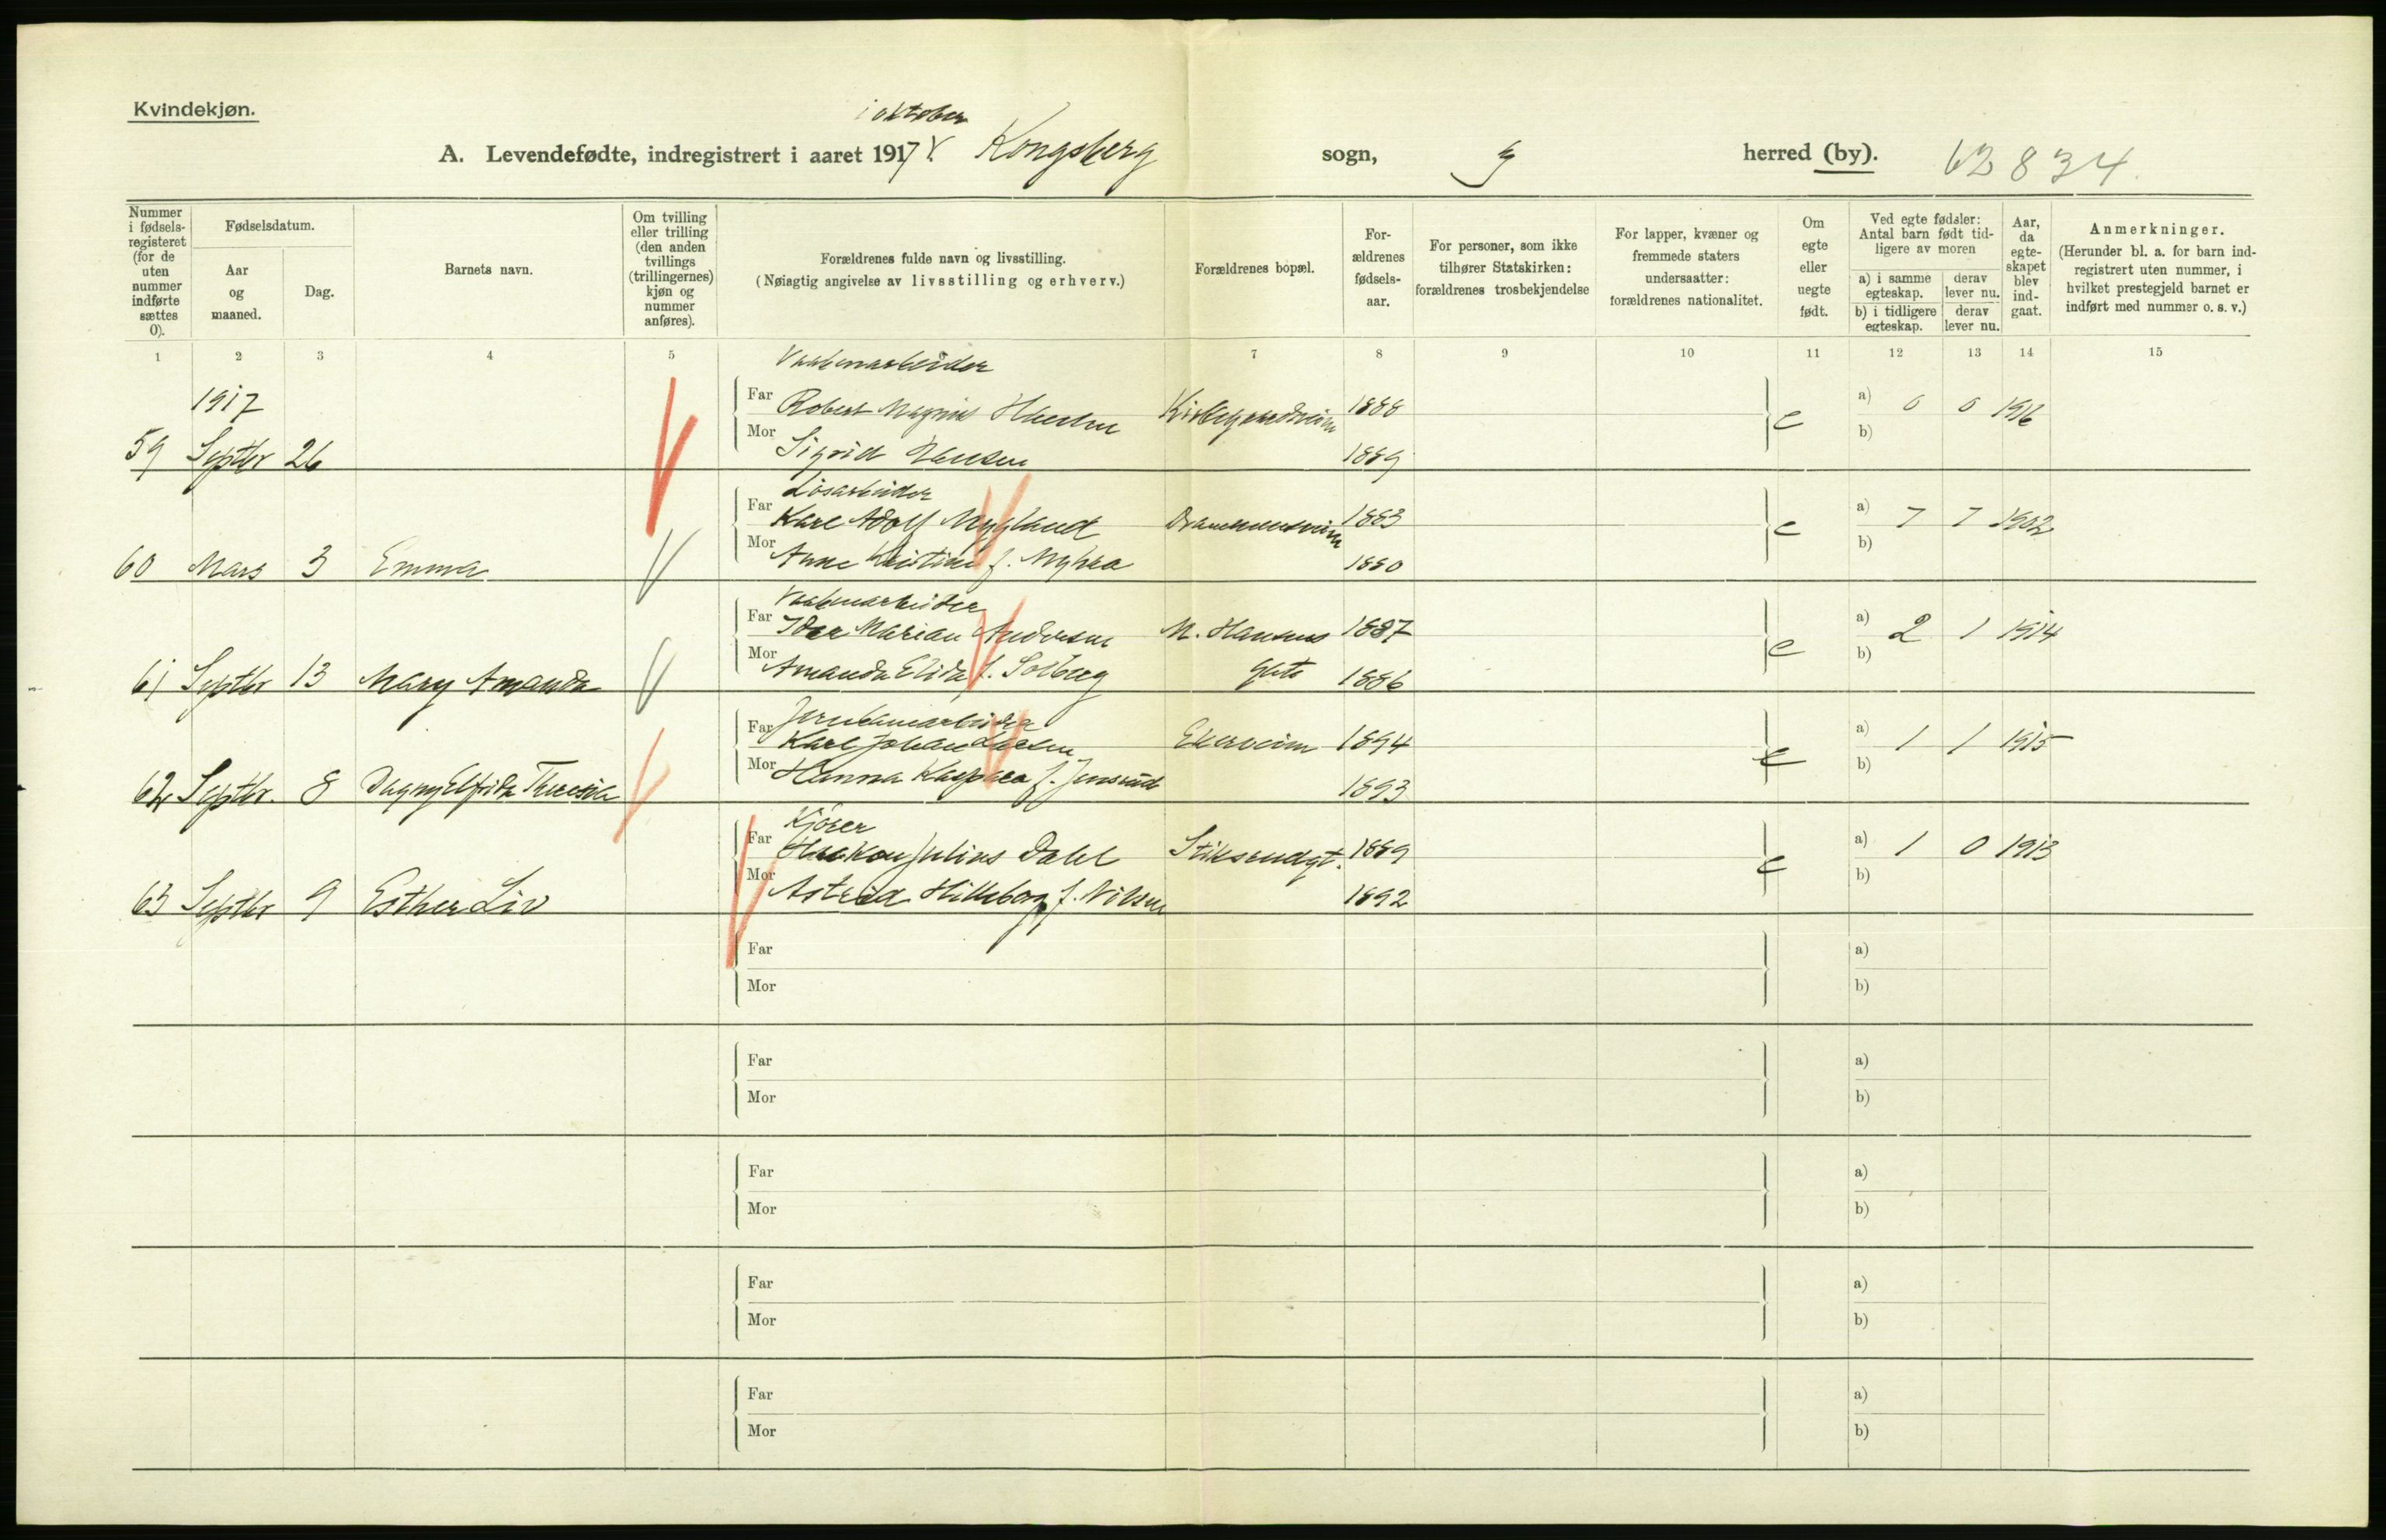 Kvindekjøn.
i oktober
A. Levendefødte, indregistrert i aaret 1917 Kongsberg sogn, herred (by). 62834.
Nummer i fødsels-registeret (for de uten nummer indførte sættes 0).
Fødselsdatum.
Aar og maaned.
Dag.
Barnets navn.
Om tvilling eller trilling (den anden tvillings (trillingernes) kjøn og nummer anføres).
Forældrenes fulde navn og livsstilling.
(Nøiagtig angivelse av livsstilling og erhverv.)
Forældrenes bopæl.
For-ældrenes fødsels-aar.
For personer, som ikke tilhører Statskirken: forældrenes trosbekjendelse
For lapper, kvæner og fremmede staters undersaatter: forældrenes nationalitet.
Om egte eller uegte født.
Ved egte fødsler: Antal barn født tid-ligere av moren
a) i samme egteskap.
derav lever nu.
b) i tidligere egteskap.
derav lever nu.
Aar, da egte-skapet blev ind-gaat.
Anmerkninger.
(Herunder bl. a. for barn ind-registrert uten nummer, i hvilket prestegjeld barnet er indført med nummer o. s. v.)
1 2 3 4 5 7 8 9 10 11 12 13 14 15
Vaabenarbeider
1917
Far Robert Magnus Hansen 1888 e a) 0 0 1916
Mor Sigrid Hansen 1889 b)
59 Septbr 26
Løsarbeider
Far Karl Adolf Nygland Drammensveien 1883 e a) 7 7 1902
Mor Anne Kristine f. Myhra 1880 b)
60 Mars 3 Emma
Vaabenarbeider
Far Marian Andersen M. Hansens 1887 e a) 2 1 1914
Mor Amanda Elida f. Solberg gate 1886 b)
61 Septbr 13 Mary Amanda
Far Karl Johan Larsen Ekerveien 1894 e a) 1 1 1915
Mor Hanna Kaspara f. Jensrud 1893 b)
62 Septbr. 8 Dagny Elfrida Theresia
Kjører
Far Haakon Julius Dahl 1889 e a) 1 0 1913
Mor Astrid Hilleborg f. Nilsen 1892 b)
63 Septbr 9 Esther Liv
Far a)
Mor b)
Far a)
Mor b)
Far a)
Mor b)
Far a)
Mor b)
Far a)
Mor b)